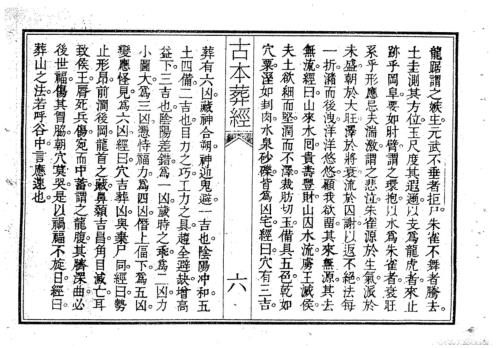 龍踞謂之嫉主元武不垂者拒尸朱雀不舞者騰去
土圭測其方位玉尺度其遐邇以支為龍虎者來止
跡乎岡阜要如肘臂謂之環抱以水為朱雀者衰旺
系乎形應忌夫湍激謂之悲泣朱雀源於生氣派於
未盛朝於大旺澤於將衰流於囚謝以返不絕法每
一折瀦而後洩洋洋悠悠顧我欲留其來無源其去
無流經曰山來水囘貴壽豐財山囚水流虜王滅侯
夫土欲細而堅潤而不澤裁肪切玉備具五色乾如
穴粟溼如刲肉水泉砂礫皆為凶宅經曰穴有三吉
古本葬經
六
葬有六凶藏神合朔神迎鬼避一吉也陰陽冲和五
土四備二吉也目力之巧工力之具趨全避缺增高
益下三吉也陰陽差錯為一凶歲時之乖為二凶力
小圖大為三凶憑恃福力為四凶僭上偪下為五凶
變應怪見為六凶經曰穴吉葬凶與棄尸同經曰勢
止形昂前澗後岡龍首之藏鼻顙吉昌角目滅亡耳
致侯王脣死兵傷宛而中蓄謂之龍腹其臍深曲必
後世福傷其胃脇朝穴莫哭是以禍福不旋日經曰
葬山之法若呼谷中言應速也